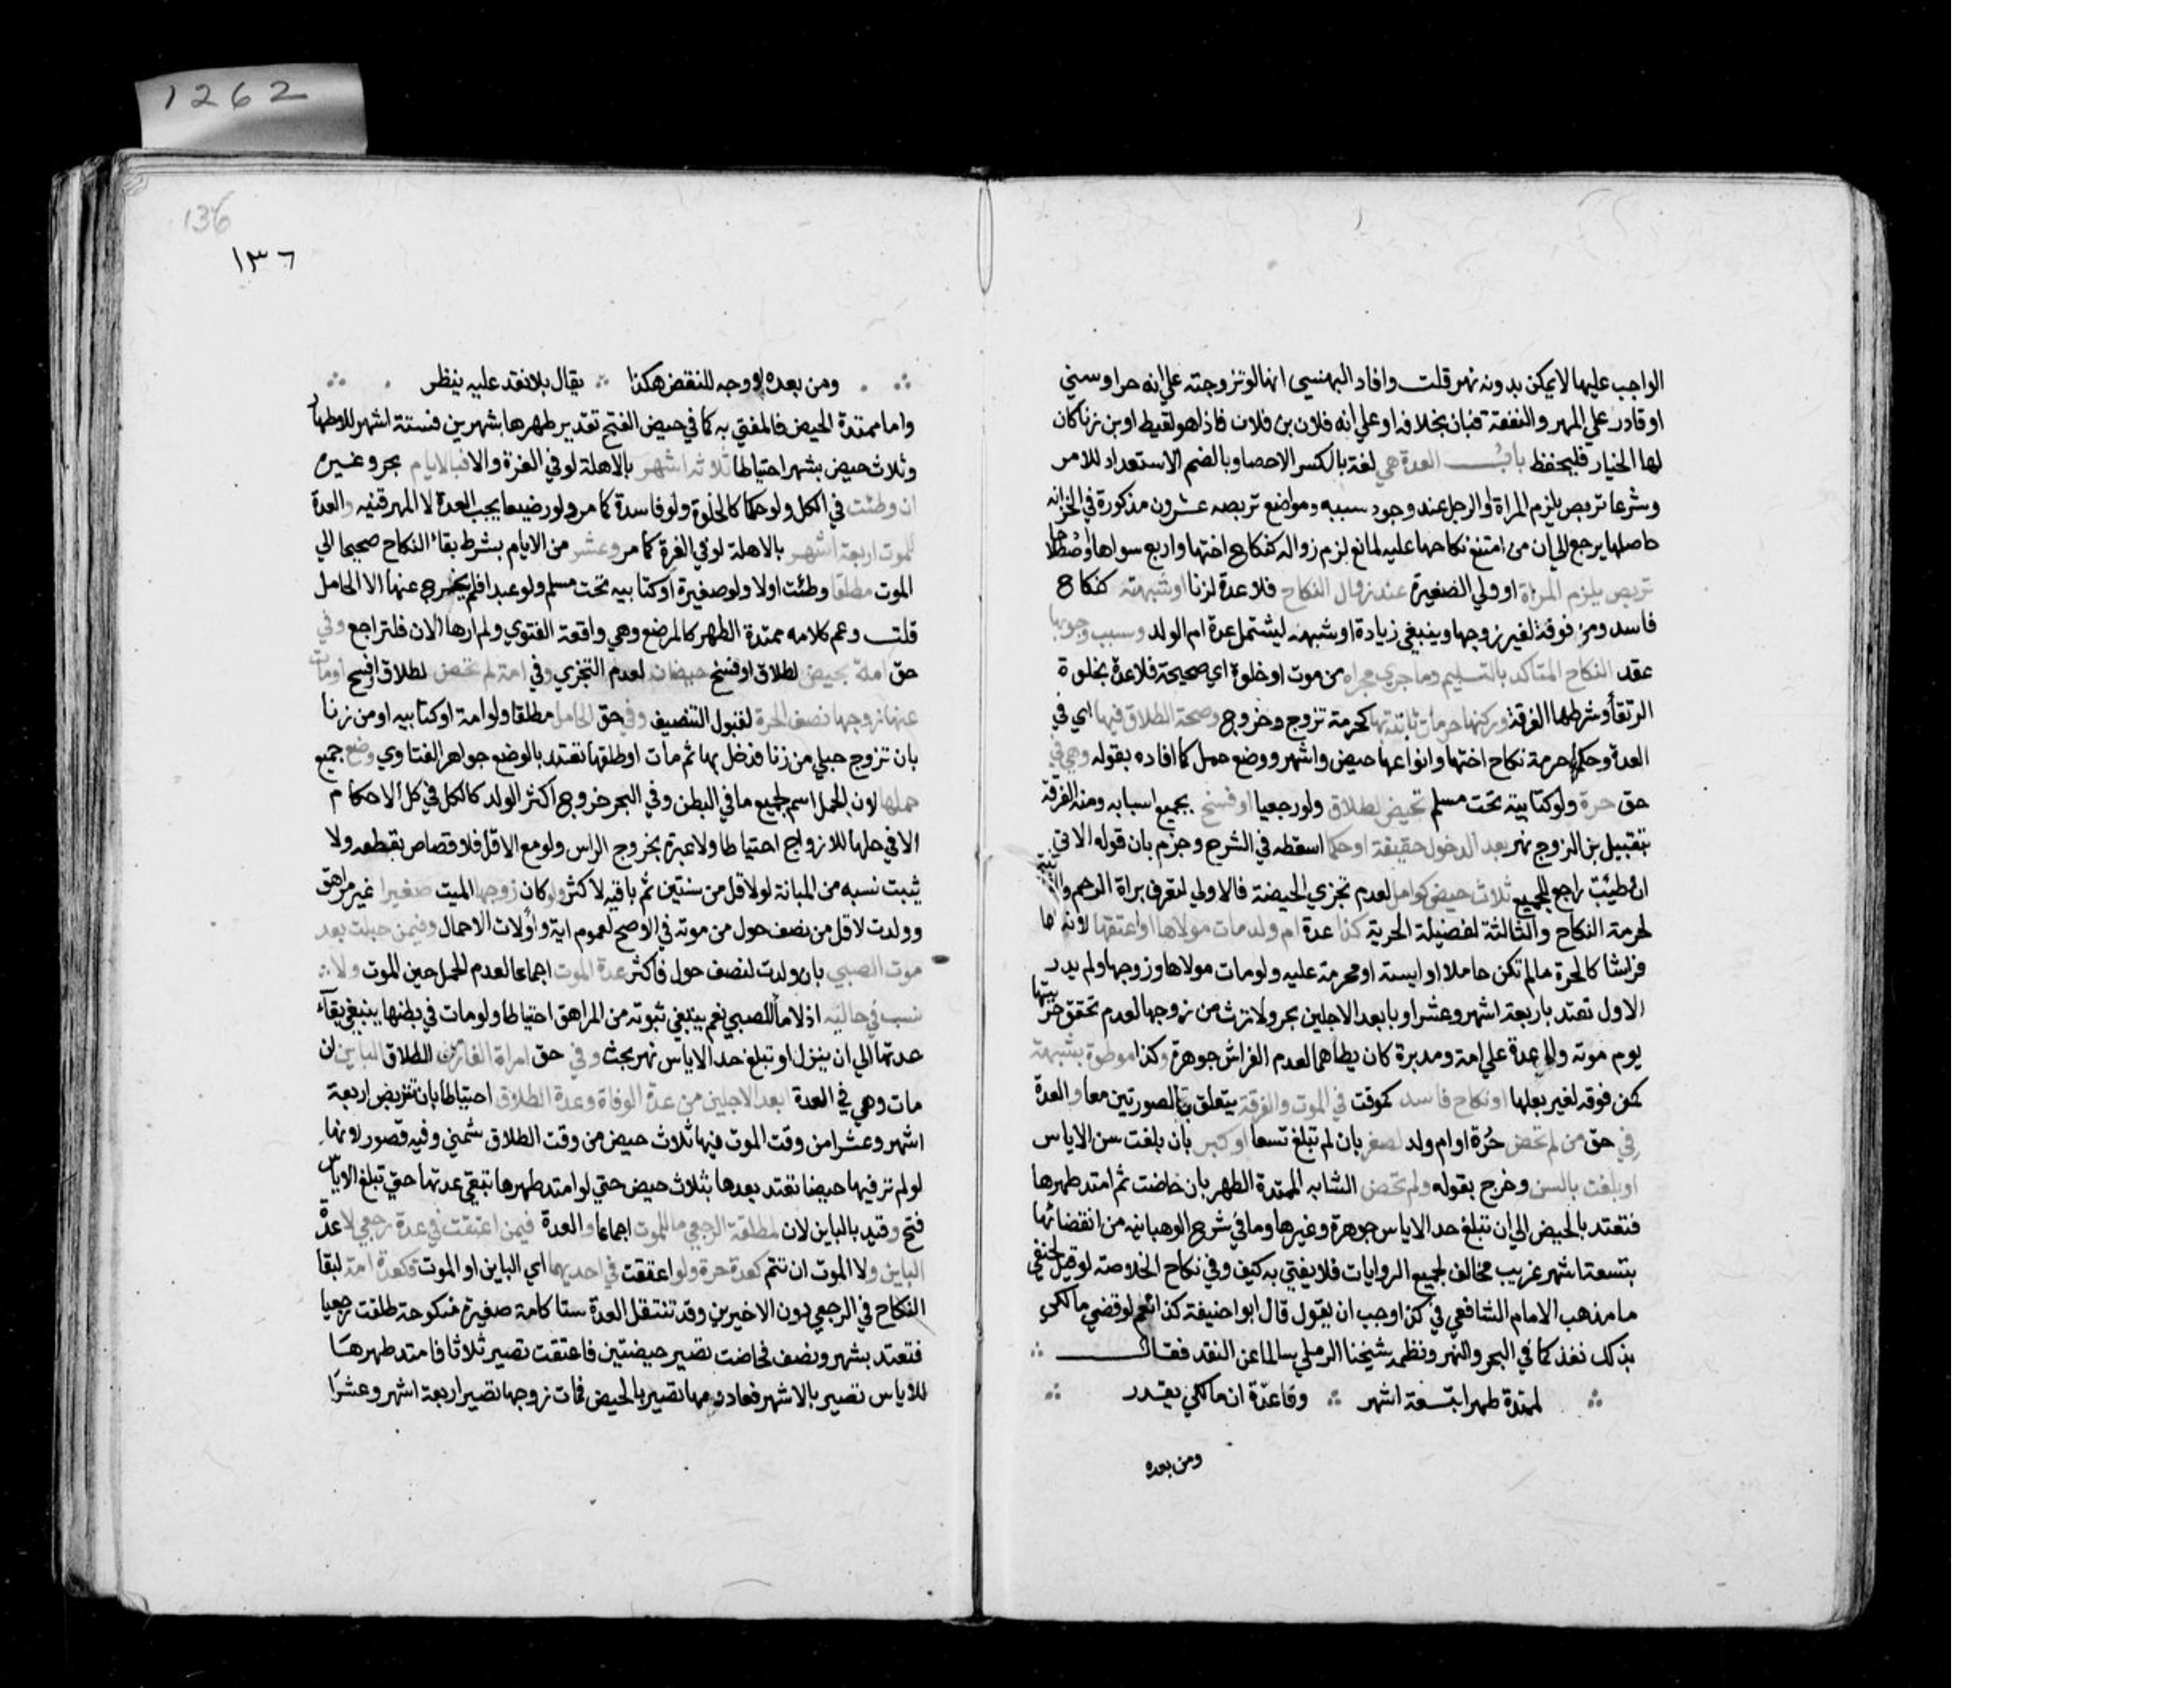 1262
الواجب عليها لا يمكن بدونه نهر قلت وافاد البهنسي انها لو تزوجته علي انه حر او سني
او قادر علي المهر والنفقة فبان بخلافه او علي انه فلان بن فلان فاذا هو لقيط او بن زنا كان
لها الخيار فليحفظ باب العدة هي لغة بالكسر الاحصا وبالضم الاستعداد للامر
وشرعا تربص يلزم المراة او الرجل عند وجود سببه ومواضع تربصه عشرون مذكورة في الخزانه
حاصلها يرجع الي ان من امتنع نكاحها عليه لمانع لزم زواله كنكاح اختها واربع سواها واصطلاحا
تربص يلزم المراة او ولي الصغيرة عند زوال النكاح فلا عدة لزنا او شبهته كنكاح
فاسد ومزفوفة لغير زوجها وينبغي زيادة او شبهه ليشتمل عدة ام الولد وسبب وجوبها
عقد النكاح المتاكد بالتسليم وما جري مجراه من موت او خلوة اي صحيحة فلا عدة بخلوة
الرتقا وشرطها الفرقة وركنها حرمات ثابتة بها كحرمة تزوج وخروج وصحة الطلاق فيها اي في
العدة وحكمها حرمة نكاح اختها وانواعها حيض واشهر ووضع حمل كما افاده بقوله وهي في
حق حرة ولو كتابية تحت مسلم تحيض لطلاق ولو رجعيا او فسخ بجميع اسبابه ومنه الفرقة
بتقبيل بن الزوج نهر بعد الدخول حقيقة او حكما اسقطه في الشرح وجزم بان قوله الاتي
ان وطئت راجع للجميع ثلاث حيض كوامل لعدم تجزي الحيضة فالاولي لتعرف براة الرحم والثانية
لحرمة النكاح والثالثة لفضيلة الحرية كذا عدة ام ولد مات مولاها او اعتقها لان لها
فراشا كالحرة ما لم تكن حاملا او ايسة او محرمة عليه ولو مات مولاها وزوجها ولم يدر
الاول تعتد باربعة اشهر وعشر او بابعد الاجلين بحر ولا ترث من زوجها لعدم تحقق حريتها
يوم موته ولا عدة علي امة ومدبرة كان يطاهما لعدم الفراش جوهرة وكذا موطوة بشبهة
كمزفوفه لغير بعلها او نكاح فاسد كموقت في الموت والفرقة يتعلق بالصورتين معا والعدة
في حق من لم تحض حُرّة او ام ولد لصغر بان لم تبلغ تسعا او كبر بان بلغت سن الاياس
او بلغت بالسن وخرج بقوله ولم تحض الشابه الممتدة الطهر بان حاضت ثم امتد طهرها
فتعتد بالحيض الي ان تبلغ حد الاياس جوهرة وغيرها وما في شرح الوهبانيه من انقضائها
بتسعة اشهر غريب مخالف لجميع الروايات فلا يفتي به كيف وفي نكاح الخلاصة لو قيل لحنفي
ما مذهب الامام الشافعي في كذا وجب ان يقول قال ابو حنيفة كذا نعم لو قضي مالكي
بذلك نفذ كما في البحر والنهر ونظمه شيخنا الرملي سالما عن النقد فقال
لممتدة طهرا بتسعة اشهر وفا عدّة ان مالكي يقدر
ومن بعده
136
١٣٦
ومن بعده لا وجه للنقض هكذا يقال بلا نقد عليه ينظر
واما ممتدة الحيض فالمفتي به كما في حيض الفتح تقدير طهرها بشهرين فستة اشهر للاطهار
وثلاث حيض بشهر احتياطا ثلاثة اشهر بالاهلة لو في الغرة والا فبالايام بحر وغيره
ان وطئت في الكل ولو حكما كالخلوة ولو فاسدة كما مر ولو رضيعا يجب العدة لا المهر قنيه والعدة
للموت اربعة اشهر بالاهلة لو في الغرة كما مر وعشر من الايام بشرط بقاء النكاح صحيحا الي
الموت مطلقا وطئت اولا ولو صغيرة او كتابيه تحت مسلم ولو عبدا فلم يخرج عنها الا الحامل
قلت وعم كلامه ممتدة الطهر كالمرضع وهي واقعة الفتوي ولم ارها الان فلتراجع وفي
حق امة تحيض لطلاق او فسخ حيضتان لعدم التجزي وفي امة لم تحض لطلاق او فسخ او مات
عنها زوجها نصف الحرة لقبول التنصيف وفي حق الحامل مطلقا ولو امة او كتابيه او من زنا
بان تزوج حبلي من زنا فدخل بها ثم مات او طلقها تعتد بالوضع جواهر الفتاوي وضع جميع
حملها لان الحمل اسم لجميع ما في البطن وفي البحر خروج اكثر الولد كالكل في كل الاحكام
الا في حلها للازواج احتياطا ولا عبرة بخروج الراس ولو مع الاقل فلا قصاص بقطعه ولا
يثبت نسبه من المبانة لو لاقل من سنتين ثم باقيه لاكثر ولو كان زوجها الميت صغيرا غير مراهق
وولدت لاقل من نصف حول من موته في الاصح لعموم اية واولات الاحمال وفيمن حبلت بعد
موت الصبي بان ولدت لنصف حول فاكثر عدة الموت اجماعا لعدم الحمل حين الموت ولا
نسب في حاليه اذ لا ماء للصبي نعم ينبغي ثبوته من المراهق احتياطا ولو مات في بطنها ينبغي بقاء
عدتها الي ان ينزل او تبلغ حد الاياس نهر بحث وفي حق امراة الفار من الطلاق الباين ان
مات وهي في العدة ابعد الاجلين من عدة الوفاة وعدة الطلاق احتياطا بان تتربص اربعة
اشهر وعشرا من وقت الموت فيها ثلاث حيض من وقت الطلاق شمني وفيه قصور لانها
لو لم تر فيها حيضا تعتد بعدها بثلاث حيض حتي لو امتد طهرها تبقي عدتها حتي تبلغ الاياس
فتح وقيد بالباين لان لمطلقة الرجعي ما للموت اجماعا والعدة فيمن اعتقت في عدة رجعي لا عدة
الباين ولا الموت ان تتم كعدة حرة ولو اعتقت في احديهما اي الباين او الموت فكعدة امة لبقا
النكاح في الرجعي دون الاخيرين وقد تنتقل العدة ستا كامة صغيرة منكوحة طلقت رجعيا
فتعتد بشهر ونصف فحاضت تصير حيضتين فاعتقت تصير ثلاثا فامتد طهرها
للاياس تصير بالاشهر فعاد دمها تصير بالحيض فمات زوجها تصير اربعة اشهر وعشرا